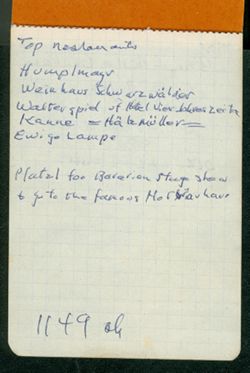 Top Restaurants
Humplmayr
Weinhaus Schwarzwälder
Walterspiel of Hotel Vier Jahreszeiten
Kanne =
Ewige Lampe
Platzl for Bavarian stage show
& go to the famous Hofbräuhaus
1149 ok